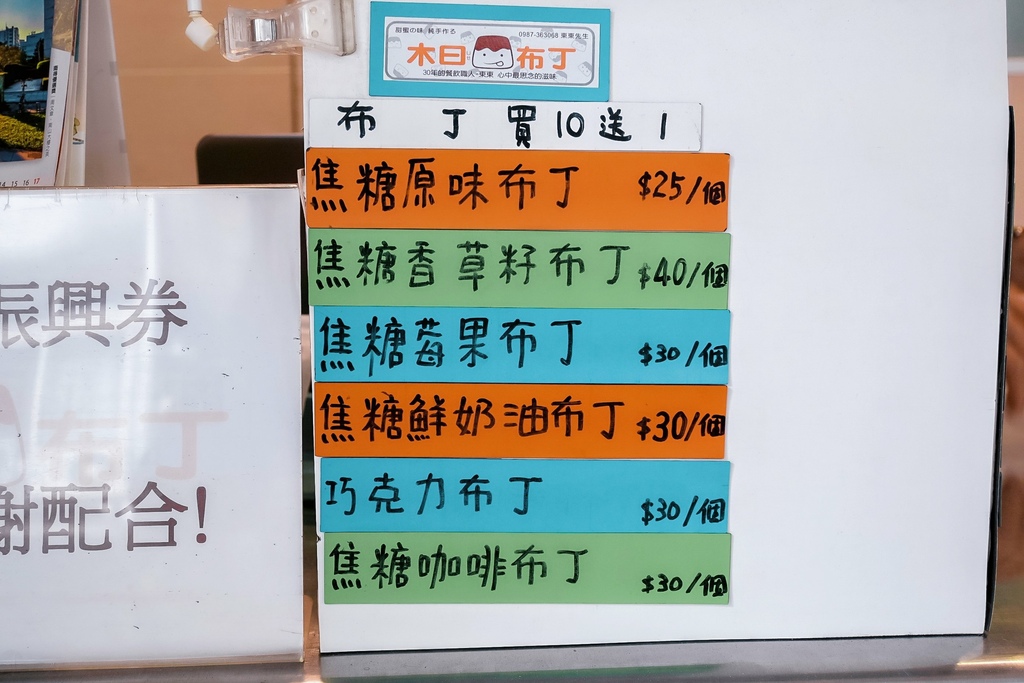 甜蜜の味 純手作る
0987-363068 東東先生
木日布丁
30年的餐飲職人-東東 心中最思念的滋味
布 丁 買10送1
焦糖原味布丁 $25/個
焦糖香草籽布丁 $40/個
焦糖莓果布丁 $30/個
焦糖鮮奶油布丁 $30/個
巧克力布丁 $30/個
焦糖咖啡布丁 $30/個
振興券
布丁
謝配合!
14 15 16 17